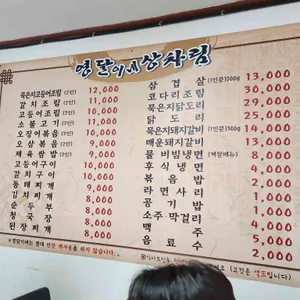 영달이네 상차림
묵은지고등어조림 (2인) 12,000
갈치조림 (2인) 11,000
고등어조림 (2인) 10,000
소불고기 (2인) 11,000
오징어볶음 (2인) 10,000
오삼볶음 (2인) 10,000
제육쌈밥 (2인) 9,000
고등어구이 10,000
갈치구이 10,000
동태찌개 9,000
김치찌개 8,000
순두부 8,000
청국장 8,000
된장찌개 8,000
삼겹살 (1인분)200g 13,000
코다리조림 30,000
묵은지닭도리 30,000
닭도리 25,000
묵은지돼지갈비 (1인분)300g 14,000
매운돼지갈비 13,000
물비빔냉면 (계절메뉴) 8,000
후식냉면 4,000
볶음밥 2,000
라면사리 1,000
공기밥 1,000
소주막걸리 4,000
맥주 5,000
음료수 2,000